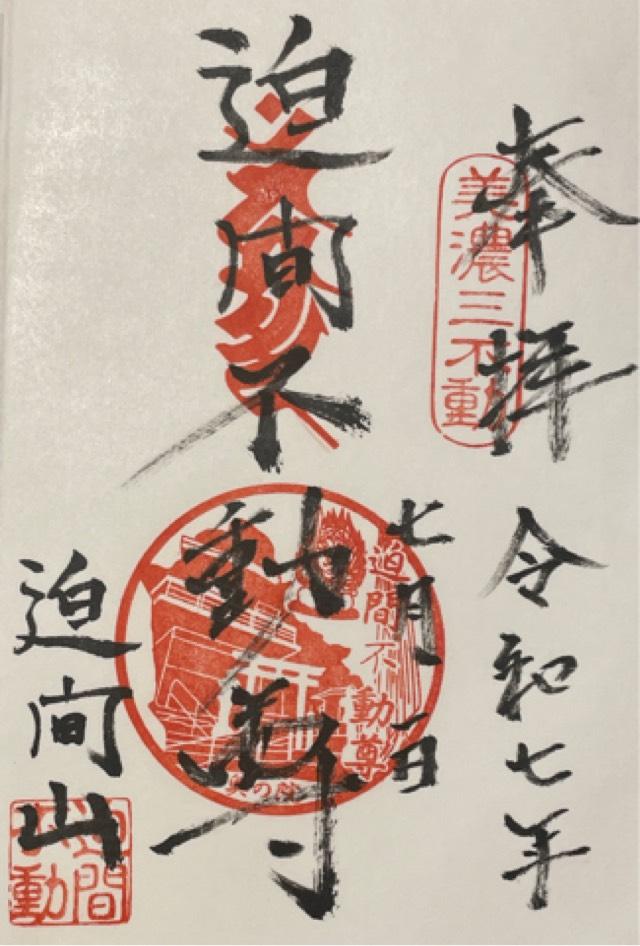 奉拝
美濃三不動
令和七年
七月一日
迫間不動尊
迫間不動尊
奥の院
迫間山
迫間不動